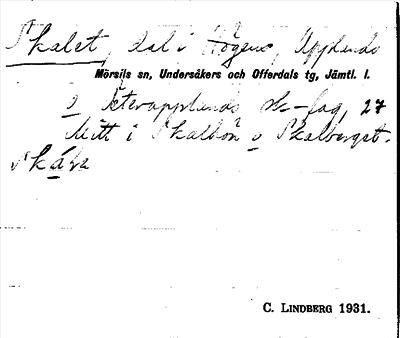 Skalet, dal i Högens, Upplands
Mörsils sn, Undersåkers och Offerdals tg, Jämtl. l.
o Ytterupplands sk-fog, 27
Mitt i Skalhön o Skalberget.
skála
C. LINDBERG 1931.